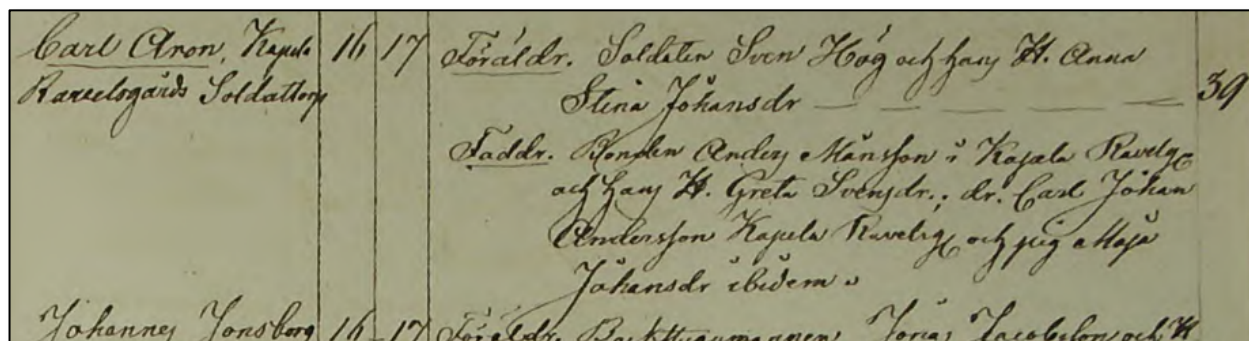 Carl Aron, Kapela 16 17 Föräldr. Soldaten Sven Hög och hans H. Anna
Ravelsgårds Soldattorp Stina Johansdr — — — — — 39
Faddr. Bonden Anders Månsson i Kapela Ravelsg
och hans H. Greta Svensdr.; dr. Carl Johan
Andersson Kapela Ravelsg och pig Maja
Johansdr ibidem.
Johannes Jonsberg 16 17 Föräldr. Backstugumannen Jonas Jacobsson och H